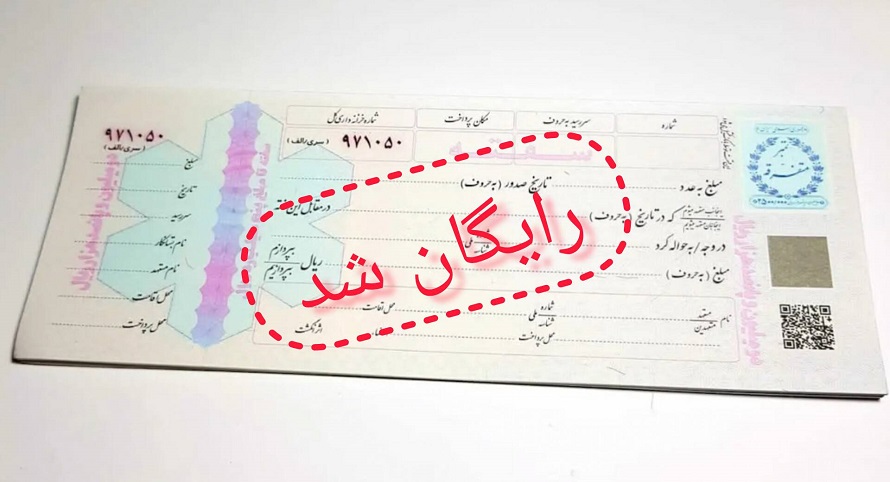 شماره
سررسید به حروف
مکان پرداخت
شماره خزانه داری کل
۹۷۱۰۵۰
(سری/الف)
سفته
مبلغ به عدد
تاریخ صدور (به حروف)
متعهد میشوم
متعهد میشویم
که در تاریخ (به حروف)
در مقابل این سفته
در وجه / به حواله کرد
شناسه ملی
مبلغ (به حروف)
ریال
بپردازم
بپردازیم
نام
متعهد
متعهدین
شماره
شناسه
ملی
محل اقامت
محل پرداخت
اثر انگشت
رایگان شد
متفرقه
۹۷۱۰۵۰
(سری/الف)
مبلغ
تاریخ
سررسید
نام بستانکار
نام متعهد
محل اقامت
محل پرداخت